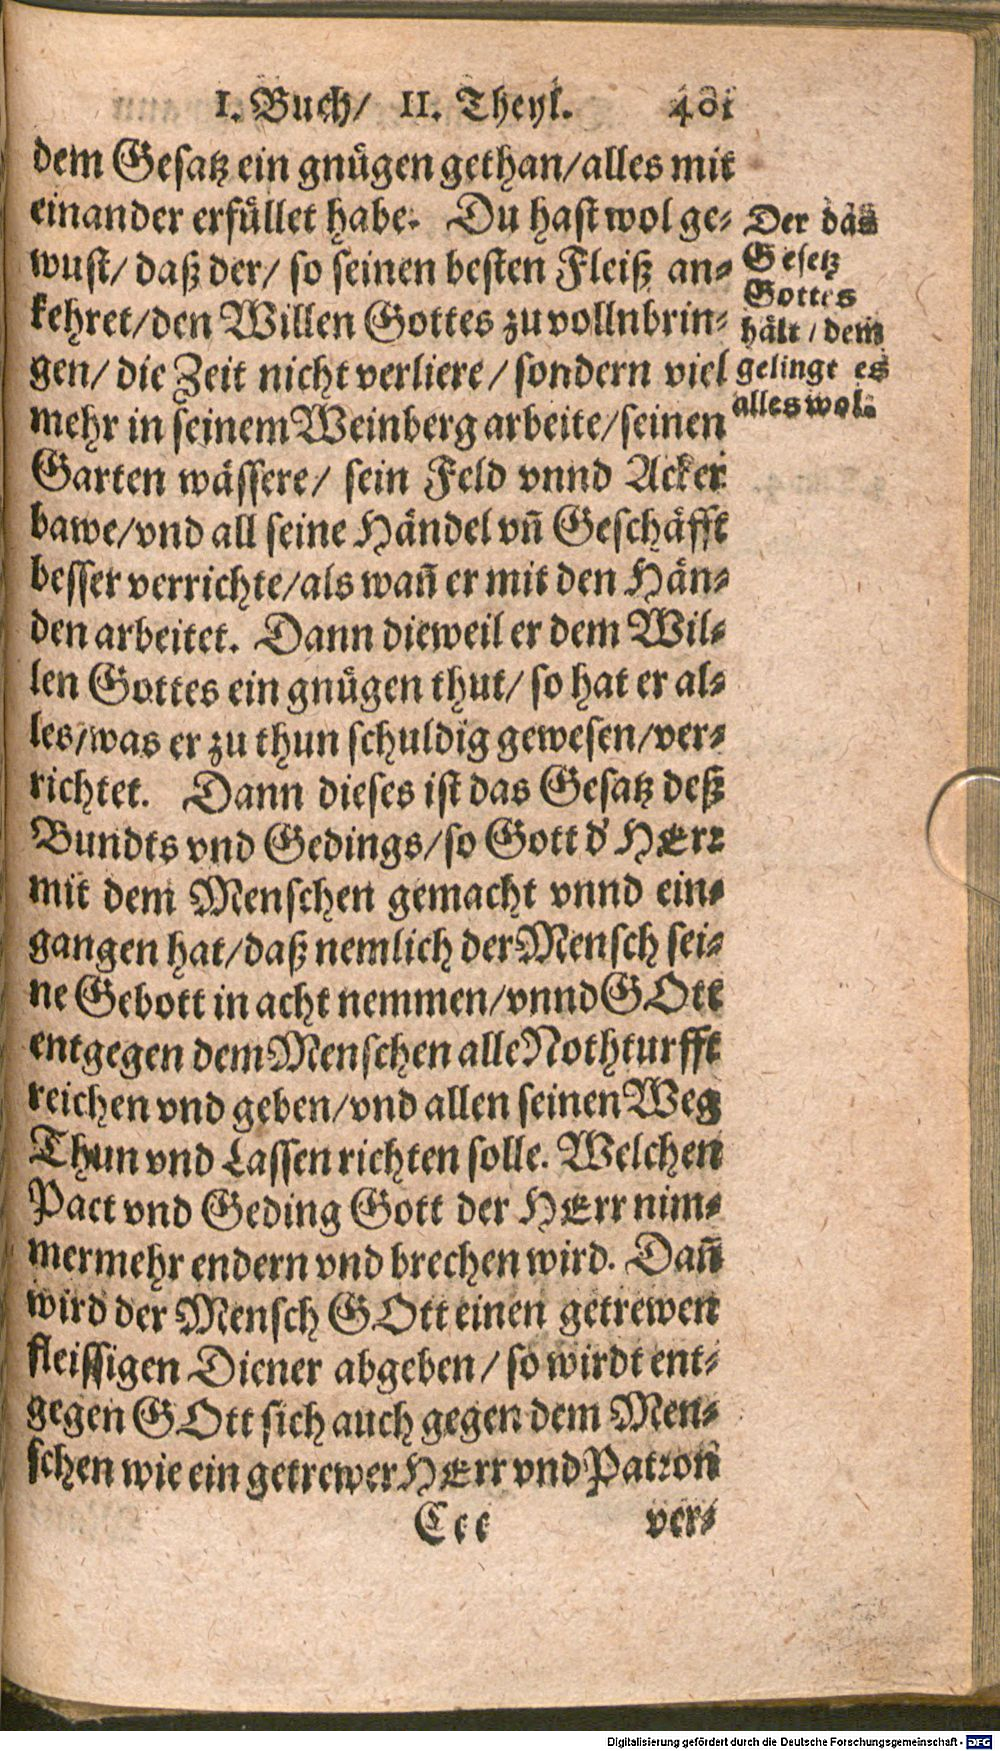 I. Buch/ II. Theyl. 401
dem Gesatz ein gnügen gethan/alles mit
einander erfüllet habe. Du hast wol ge-
wust/ daß der/ so seinen besten Fleiß an-
kehret/den Willen Gottes zu vollnbrin-
gen/ die Zeit nicht verliere/ sondern viel
mehr in seinem Weinberg arbeite/seinen
Garten wässere/ sein Feld vnnd Acker
bawe/vnd all seine Händel vn̄ Geschäfft
besser verrichte/als wan̄ er mit den Hän-
den arbeitet. Dann dieweil er dem Wil-
len Gottes ein gnügen thut/ so hat er al-
les/was er zu thun schuldig gewesen/ver-
richtet. Dann dieses ist das Gesatz deß
Bundts vnd Gedings/so Gott d' HErr
mit dem Menschen gemacht vnnd ein-
gangen hat/daß nemlich der Mensch sei-
ne Gebott in acht nemmen/vnnd GOtt
entgegen dem Menschen alle Nothturfft
reichen vnd geben/vnd allen seinen Weg
Thun vnd Lassen richten solle. Welchen
Pact vnd Geding Gott der HErr nim-
mermehr endern vnd brechen wird. Dan̄
wird der Mensch GOtt einen getrewen
fleissigen Diener abgeben/ so wirdt ent-
gegen GOtt sich auch gegen dem Men-
schen wie ein getrewer HErr vnd Patron
Ccc ver-
Der das
Gesetz
Gottes
hält/dem
gelingt es
alles wol.
Digitalisierung gefördert durch die Deutsche Forschungsgemeinschaft - DFG